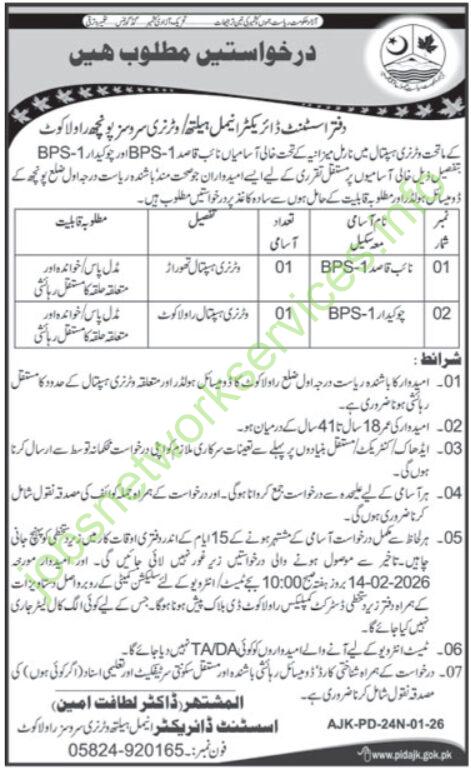 آزاد حکومت ریاست جموں و کشمیر کی تین ترجیحات تحریک آزادی کشمیر گڈ گورننس تعمیر و ترقی
درخواستیں مطلوب ہیں
دفتر اسسٹنٹ ڈائریکٹر انیمل ہیلتھ/ وٹرنری سروسز پونچھ راولاکوٹ
کے ماتحت وٹرنری ہسپتال میں نارمل میزانیہ کے تحت خالی آسامیاں نائب قاصد BPS-1 اور چوکیدار BPS-1
بتفصیل ذیل خالی آسامیوں پر مستقل تقرری کے لیے ایسے امیدواران جو صحت مند باشندہ ریاست درجہ اول ضلع پونچھ کے
ڈومیسائل ہولڈر اور مطلوبہ قابلیت کے حامل ہوں سے سادہ کاغذ پر درخواستیں مطلوب ہیں۔
نمبر شمار نام آسامی معہ سکیل تعداد آسامی تفصیل مطلوبہ قابلیت
01 نائب قاصد BPS-1 01 وٹرنری ہسپتال تھوراڑ مڈل پاس/ خواندہ اور متعلقہ حلقہ کا مستقل رہائشی
02 چوکیدار BPS-1 01 وٹرنری ہسپتال راولاکوٹ مڈل پاس/ خواندہ اور متعلقہ حلقہ کا مستقل رہائشی
شرائط:
01۔ امیدوار کا باشندہ ریاست درجہ اول ضلع راولاکوٹ کا ڈومیسائل ہولڈر اور متعلقہ وٹرنری ہسپتال کے حدود کا مستقل
رہائشی ہونا ضروری ہے۔
02۔ امیدوار کی عمر 18 سال تا 41 سال کے درمیان ہو۔
03۔ ایڈھاک/ کنٹریکٹ/ مستقل بنیادوں پر پہلے سے تعینات سرکاری ملازم کو اپنی درخواست محکمانہ توسط سے ارسال کرنا
ہوں گی۔
04۔ ہر آسامی کے لیے علیحدہ سے درخواست جمع کروانا ہوگی۔ اور درخواست کے ہمراہ جملہ کوائف کی مصدقہ نقول شامل
کرنا ضروری ہوں گی۔
05۔ ہر لحاظ سے مکمل درخواست آسامی کے مشتہر ہونے کے 15 ایام کے اندر دفتری اوقات کار میں زیر دستخطی کو پہنچ جانی
چاہیں۔ تاخیر سے موصول ہونے والی درخواستیں زیر غور نہیں لائی جائیں گی۔ اور امیدوار مورخہ
14-02-2026 بروز ہفتہ صبح 10:00 بجے ٹیسٹ/ انٹرویو کے لئے سلیکشن کمیٹی کے روبرو اصل دستاویزات
کے ہمراہ دفتر زیر دستخطی ڈسٹرکٹ کمپلیکس راولاکوٹ ڈی بلاک پیش ہونا ہوگا۔ جس کے لیے کوئی الگ کال لیٹر جاری
نہیں کیا جائے گا۔
06۔ ٹیسٹ انٹرویو کے لیے آنے والے امیدواروں کو کوئی TA/DA نہیں دیا جائے گا۔
07۔ درخواست کے ہمراہ شناختی کارڈ، ڈومیسائل رہائشی باشندہ اور مستقل سکونتی سرٹیفکیٹ اور تعلیمی اسناد (اگر کوئی ہوں) کی
مصدقہ نقول شامل کرنا ضروری ہوں گی۔
المشتہر (ڈاکٹر لطافت امین)
اسسٹنٹ ڈائریکٹر انیمل ہیلتھ وٹرنری سروسز راولاکوٹ
فون نمبر: 05824-920165
AJK-PD-24N-01-26
www.pidajk.gok.pk
jobsnetworkservices.info